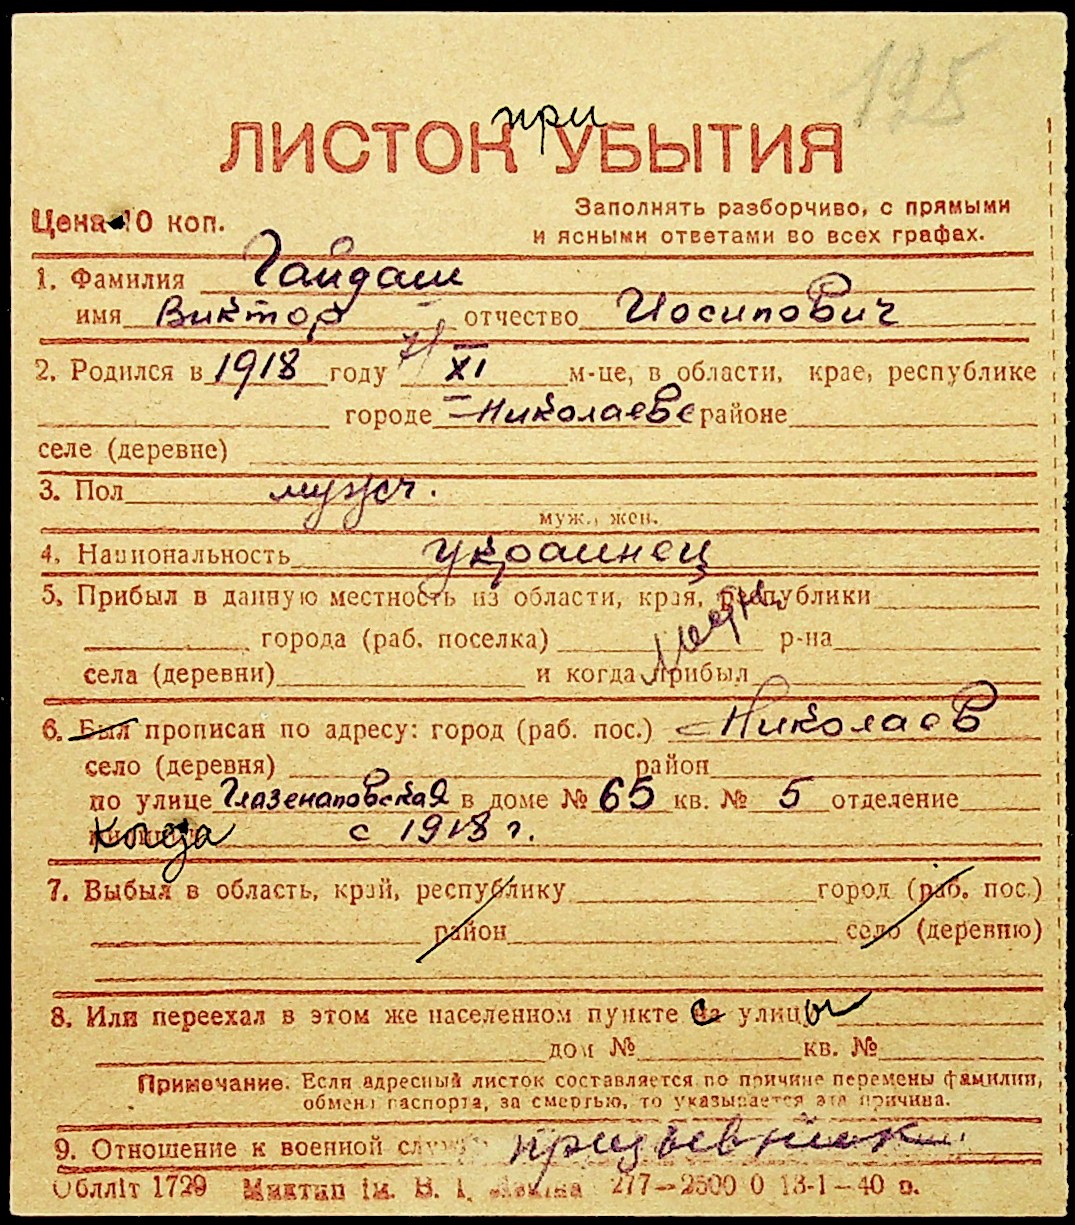 195
при
ЛИСТОК УБЫТИЯ
Цена 10 коп.
Заполнять разборчиво, с прямыми
и ясными ответами во всех графах.
1. Фамилия Гайдаш
имя Виктор отчество Иосипович
2. Родился в 1918 году XI м-це, в области, крае, республике
городе Николаеве районе
селе (деревне)
3. Пол мужч.
муж., жен.
4. Национальность украинец
5. Прибыл в данную местность из области, края, республики
города (раб. поселка) р-на
села (деревни) и когда прибыл
6. Был прописан по адресу: город (раб. пос.) Николаев
село (деревня) район
по улице Глазенаповская в доме № 65 кв. № 5 отделение
когда с 1918 г.
7. Выбыл в область, край, республику город (раб. пос.)
район село (деревню)
8. Или переехал в этом же населенном пункте с улицы
дом № кв. №
Примечание. Если адресный листок составляется по причине перемены фамилии,
обмена паспорта, за смертью, то указывается эта причина.
9. Отношение к военной службе призывник.
Облліт 1729 ім. В. І. 277—2500 0 13-1—40 р.